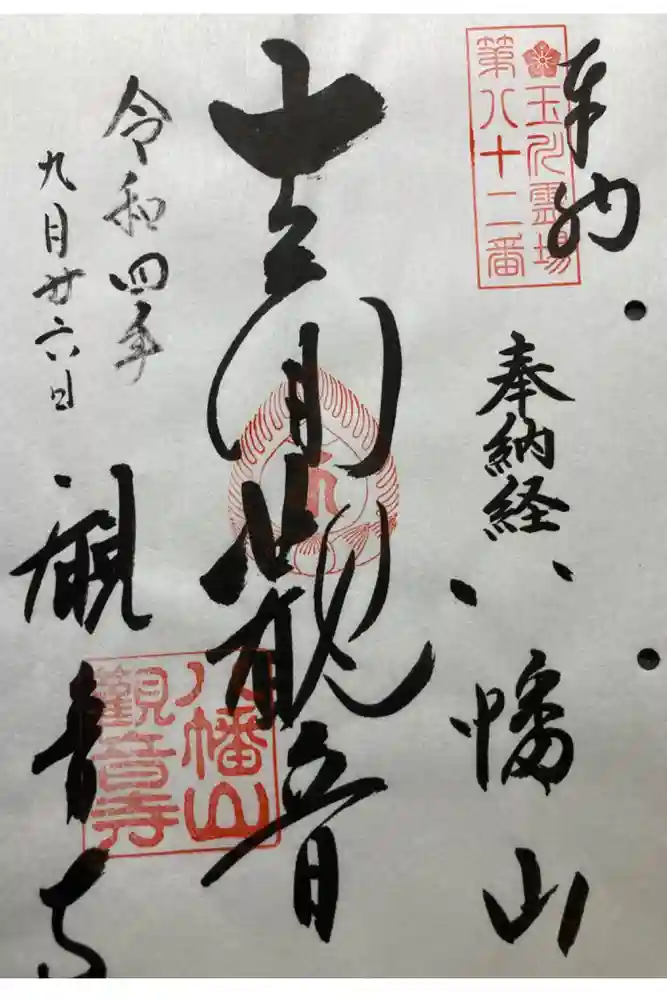 奉納
玉川霊場
第八十二番
奉納経
八幡山
十一面観音
令和四年
九月廿六日
観音寺
八幡山
觀音寺